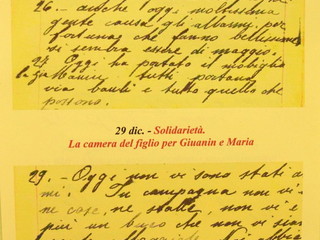 26.- anche oggi moltissima
gente causa gli allarmi, per
fortuna che fanno bellissime
vi sembra essere di maggio.
27. Oggi ha portato il mobiglia
la zia tutti portano
via bauli e tutto quello che
possono.
29 dic. - Solidarietà.
La camera del figlio per Giuanin e Maria
29. - Oggi non vi sono stati al
mi. In campagna non vi
ne case, ne stalle, non vi e
più un che non vi sian